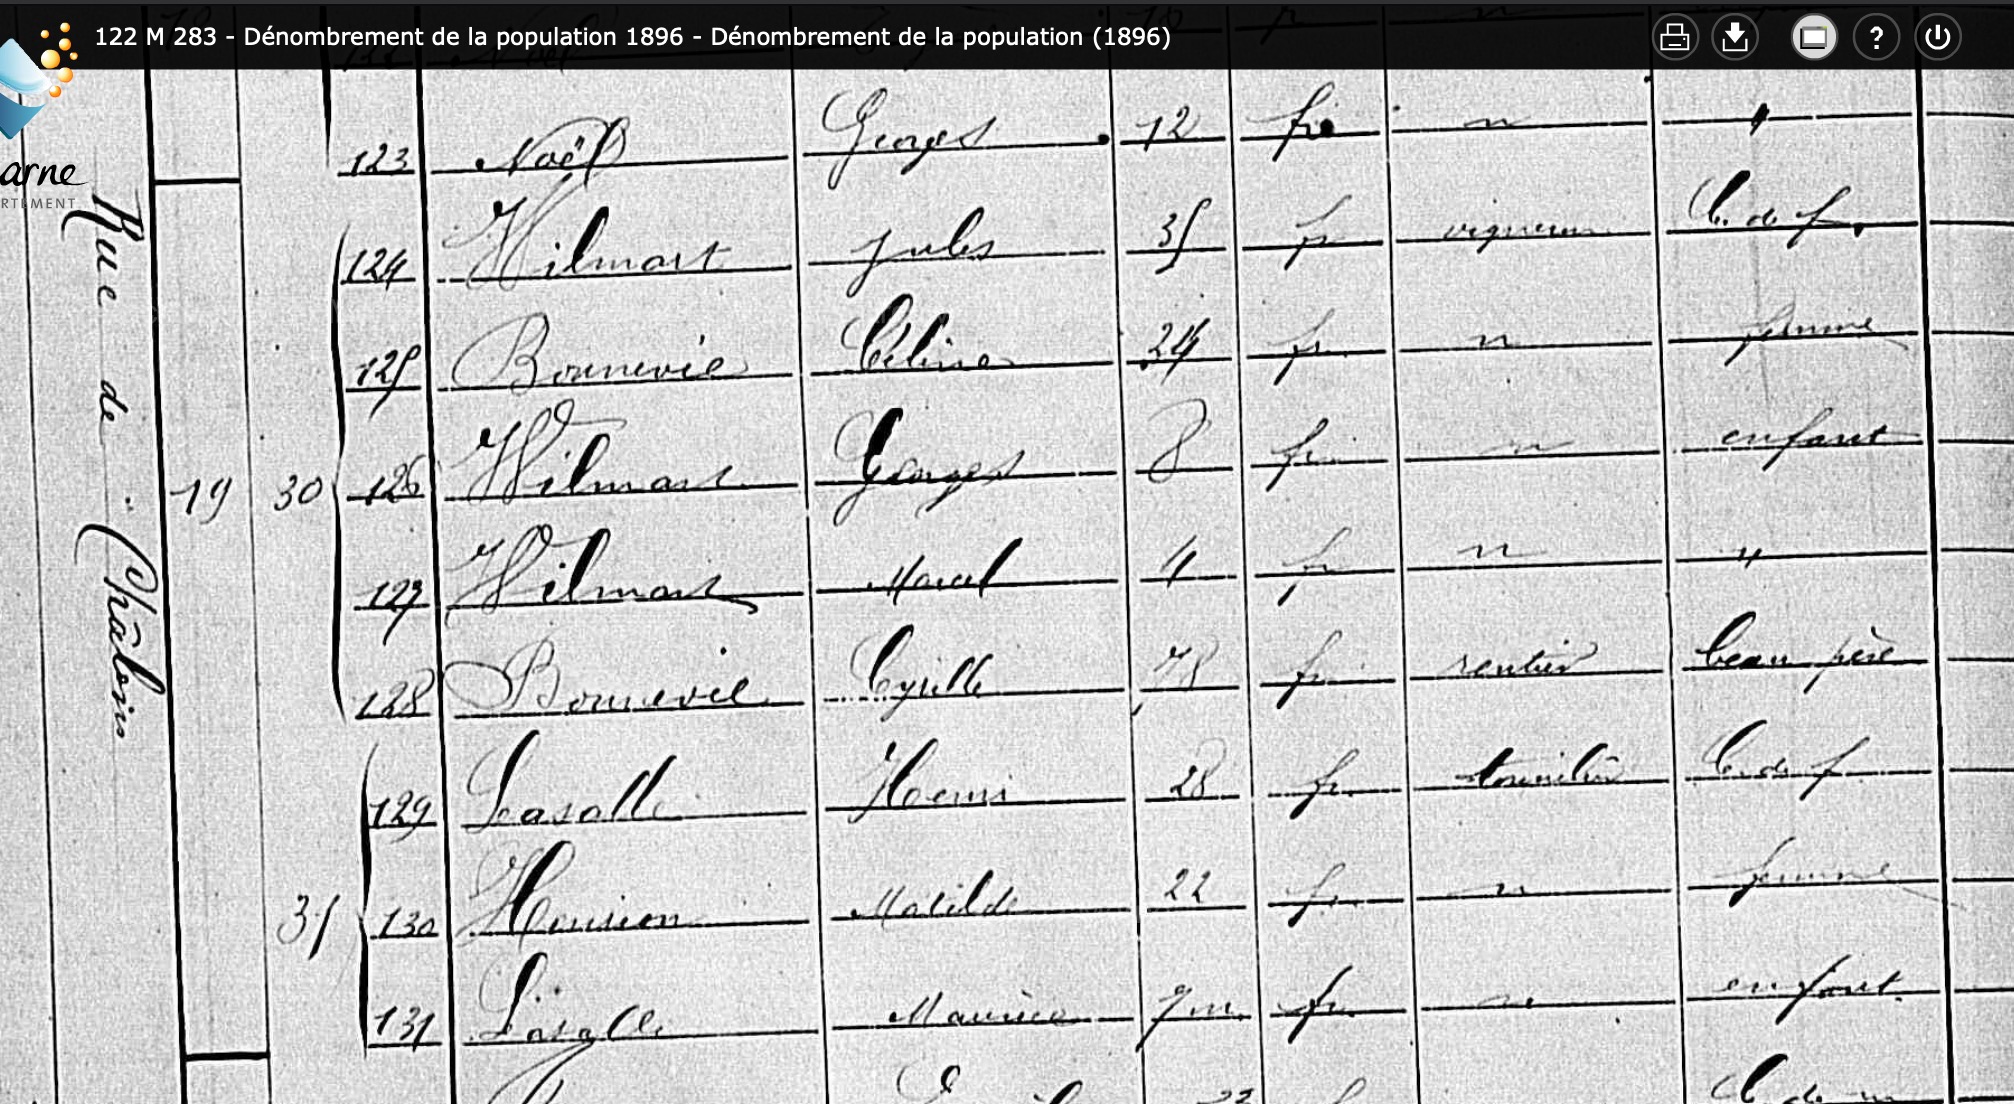 122 M 283 - Dénombrement de la population 1896 - Dénombrement de la population (1896)
arne
Rue de Châlons
123 Noël Georges 12 fr n "
124 Wilmart Jules 35 fr vigneron C. de f.
125 Bonnevie Céline 24 fr n femme
126 Wilmart Georges 8 fr n enfant
127 Wilmart Marcel 4 fr n "
19 30
128 Bonnevie Cyrille 78 fr rentier beau père
129 Lasalle Henri 28 fr C. de f
130 Matilde 22 fr n femme
31
131 Lasalle Maurice 7 m. fr n enfant